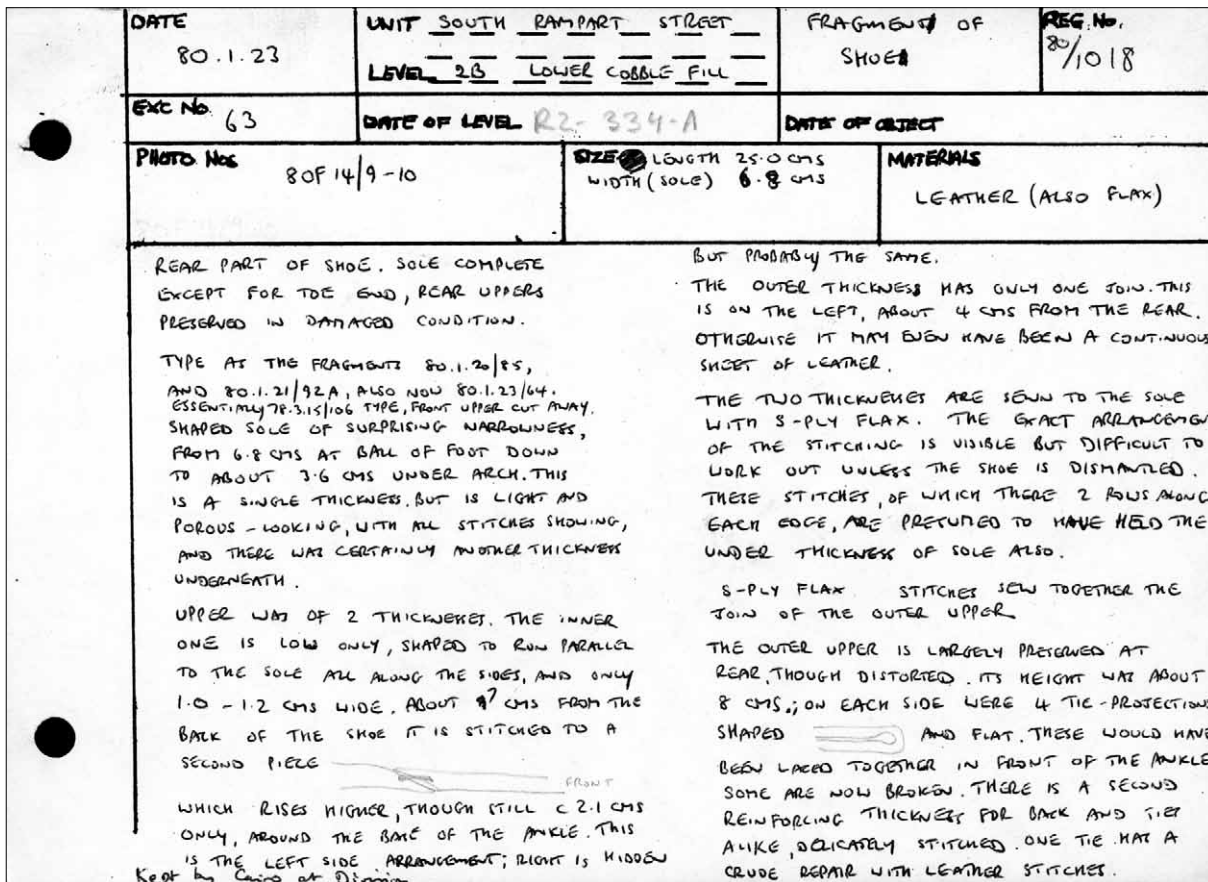 DATE
80.1.23
UNIT SOUTH RAMPART STREET
LEVEL 2B LOWER COBBLE FILL
FRAGMENT OF
SHOE
REG. No.
80/1018
EXC No. 63
DATE OF LEVEL R2-334-A
DATE OF OBJECT
PHOTO Nos
80F 14/9-10
SIZE LENGTH 25.0 CMS
WIDTH (SOLE) 6.8 CMS
MATERIALS
LEATHER (ALSO FLAX)
REAR PART OF SHOE. SOLE COMPLETE
EXCEPT FOR TOE END, REAR UPPERS
PRESERVED IN DAMAGED CONDITION.
TYPE AS THE FRAGMENTS 80.1.20/85,
AND 80.1.21/92A, ALSO NOW 80.1.23/64.
ESSENTIALLY 78.3.15/106 TYPE, FRONT UPPER CUT AWAY.
SHAPED SOLE OF SURPRISING NARROWNESS,
FROM 6.8 CMS AT BALL OF FOOT DOWN
TO ABOUT 3.6 CMS UNDER ARCH. THIS
IS A SINGLE THICKNESS, BUT IS LIGHT AND
POROUS-LOOKING, WITH ALL STITCHES SHOWING,
AND THERE WAS CERTAINLY ANOTHER THICKNESS
UNDERNEATH.
UPPER WAS OF 2 THICKNESSES. THE INNER
ONE IS LOW ONLY, SHAPED TO RUN PARALLEL
TO THE SOLE ALL ALONG THE SIDES, AND ONLY
1.0 - 1.2 CMS WIDE. ABOUT 7 CMS FROM THE
BACK OF THE SHOE IT IS STITCHED TO A
SECOND PIECE
FRONT
WHICH RISES HIGHER, THOUGH STILL C 2.1 CMS
ONLY, AROUND THE BASE OF THE ANKLE. THIS
IS THE LEFT SIDE ARRANGEMENT; RIGHT IS HIDDEN
Kept by Cairo at Division
BUT PROBABLY THE SAME.
THE OUTER THICKNESS HAS ONLY ONE JOIN. THIS
IS ON THE LEFT, ABOUT 4 CMS FROM THE REAR.
OTHERWISE IT MAY EVEN HAVE BEEN A CONTINUOUS
SHEET OF LEATHER.
THE TWO THICKNESSES ARE SEWN TO THE SOLE
WITH S-PLY FLAX. THE EXACT ARRANGEMEN
OF THE STITCHING IS VISIBLE BUT DIFFICULT TO
WORK OUT UNLESS THE SHOE IS DISMANTLED.
THESE STITCHES, OF WHICH THERE 2 ROWS ALONG
EACH EDGE, ARE PRESUMED TO HAVE HELD THE
UNDER THICKNESS OF SOLE ALSO.
S-PLY FLAX STITCHES SEW TOGETHER THE
JOIN OF THE OUTER UPPER
THE OUTER UPPER IS LARGELY PRESERVED AT
REAR, THOUGH DISTORTED. ITS HEIGHT WAS ABOUT
8 CMS.; ON EACH SIDE WERE 4 TIE-PROJECTIONS
SHAPED AND FLAT. THESE WOULD HAVE
BEEN LACED TOGETHER IN FRONT OF THE ANKLE
SOME ARE NOW BROKEN. THERE IS A SECOND
REINFORCING THICKNESS FOR BACK AND TIES
ALIKE, DELICATELY STITCHED. ONE TIE HAS A
CRUDE REPAIR WITH LEATHER STITCHES.